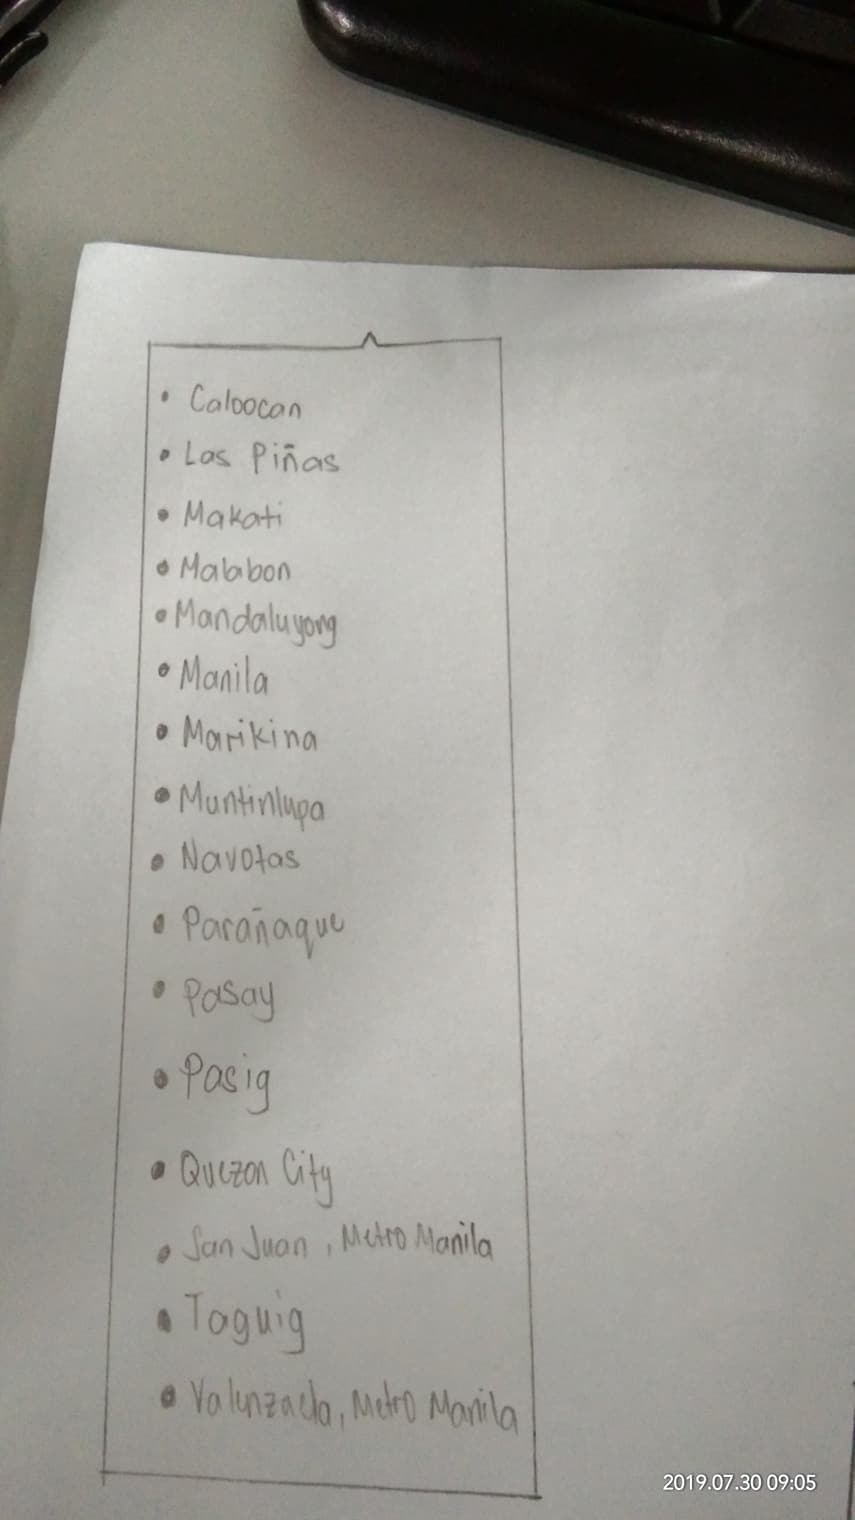 • Caloocan
• Las Piñas
• Makati
• Malabon
• Mandaluyong
• Manila
• Marikina
• Muntinlupa
• Navotas
• Parañaque
• Pasay
• Pasig
• Quezon City
• San Juan, Metro Manila
• Taguig
• Valenzuela, Metro Manila
2019.07.30 09:05